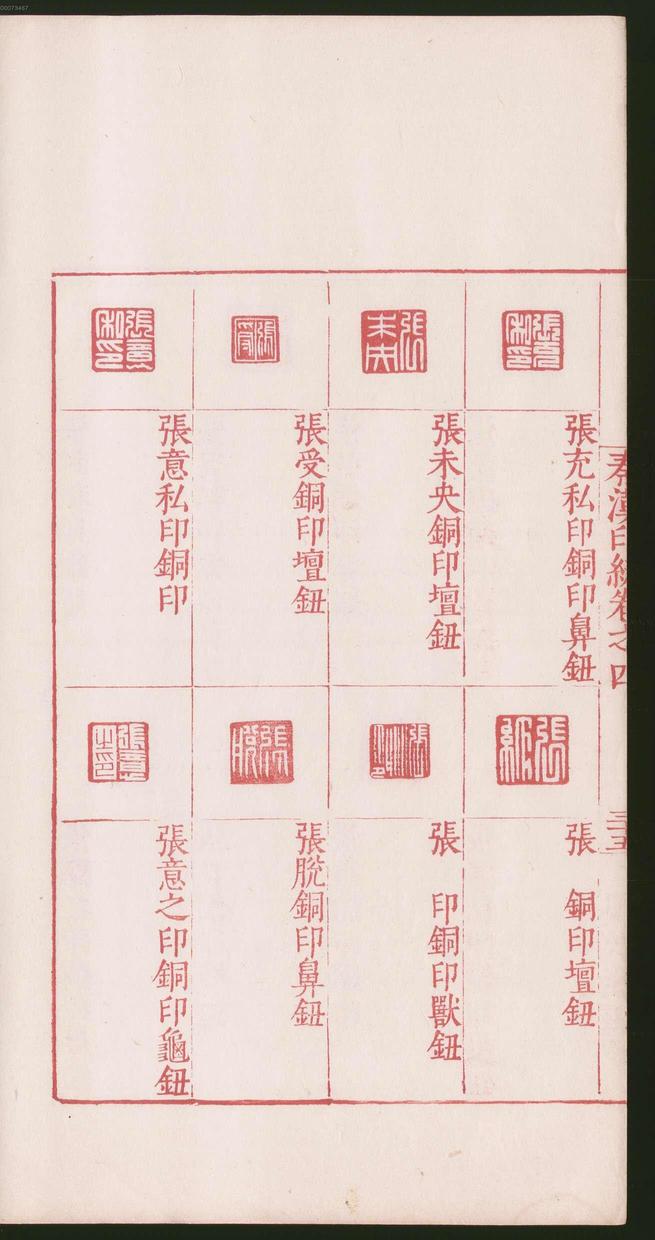 00073467
秦漢印統卷之四
三五
張充私印銅印鼻鈕
張未央銅印壇鈕
張受銅印壇鈕
張意私印銅印
張 銅印壇鈕
張 印銅印獸鈕
張脫銅印鼻鈕
張意之印銅印龜鈕